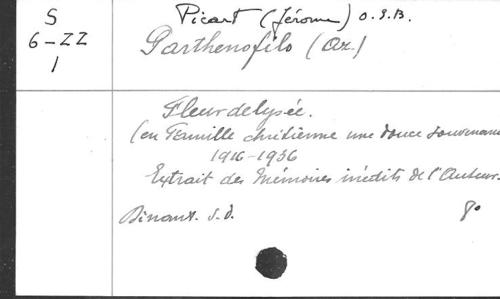 S
6-ZZ
1
Picart (Jérome) O.S.B.
Parthenofilo (Az.)
Fleurdelysée.
(en Famille chrétienne une douce souvenance
1916-1936
Extrait des Mémoires inédits de l'Auteur.
Dinant. s.d. 8°